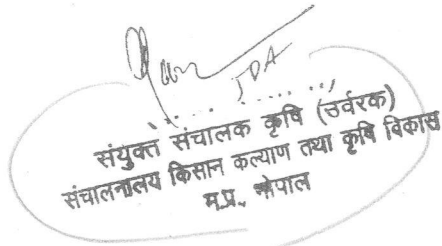 JDA
संयुक्त संचालक कृषि (उर्वरक)
संचालनालय किसान कल्याण तथा कृषि विकास
म.प्र. भोपाल